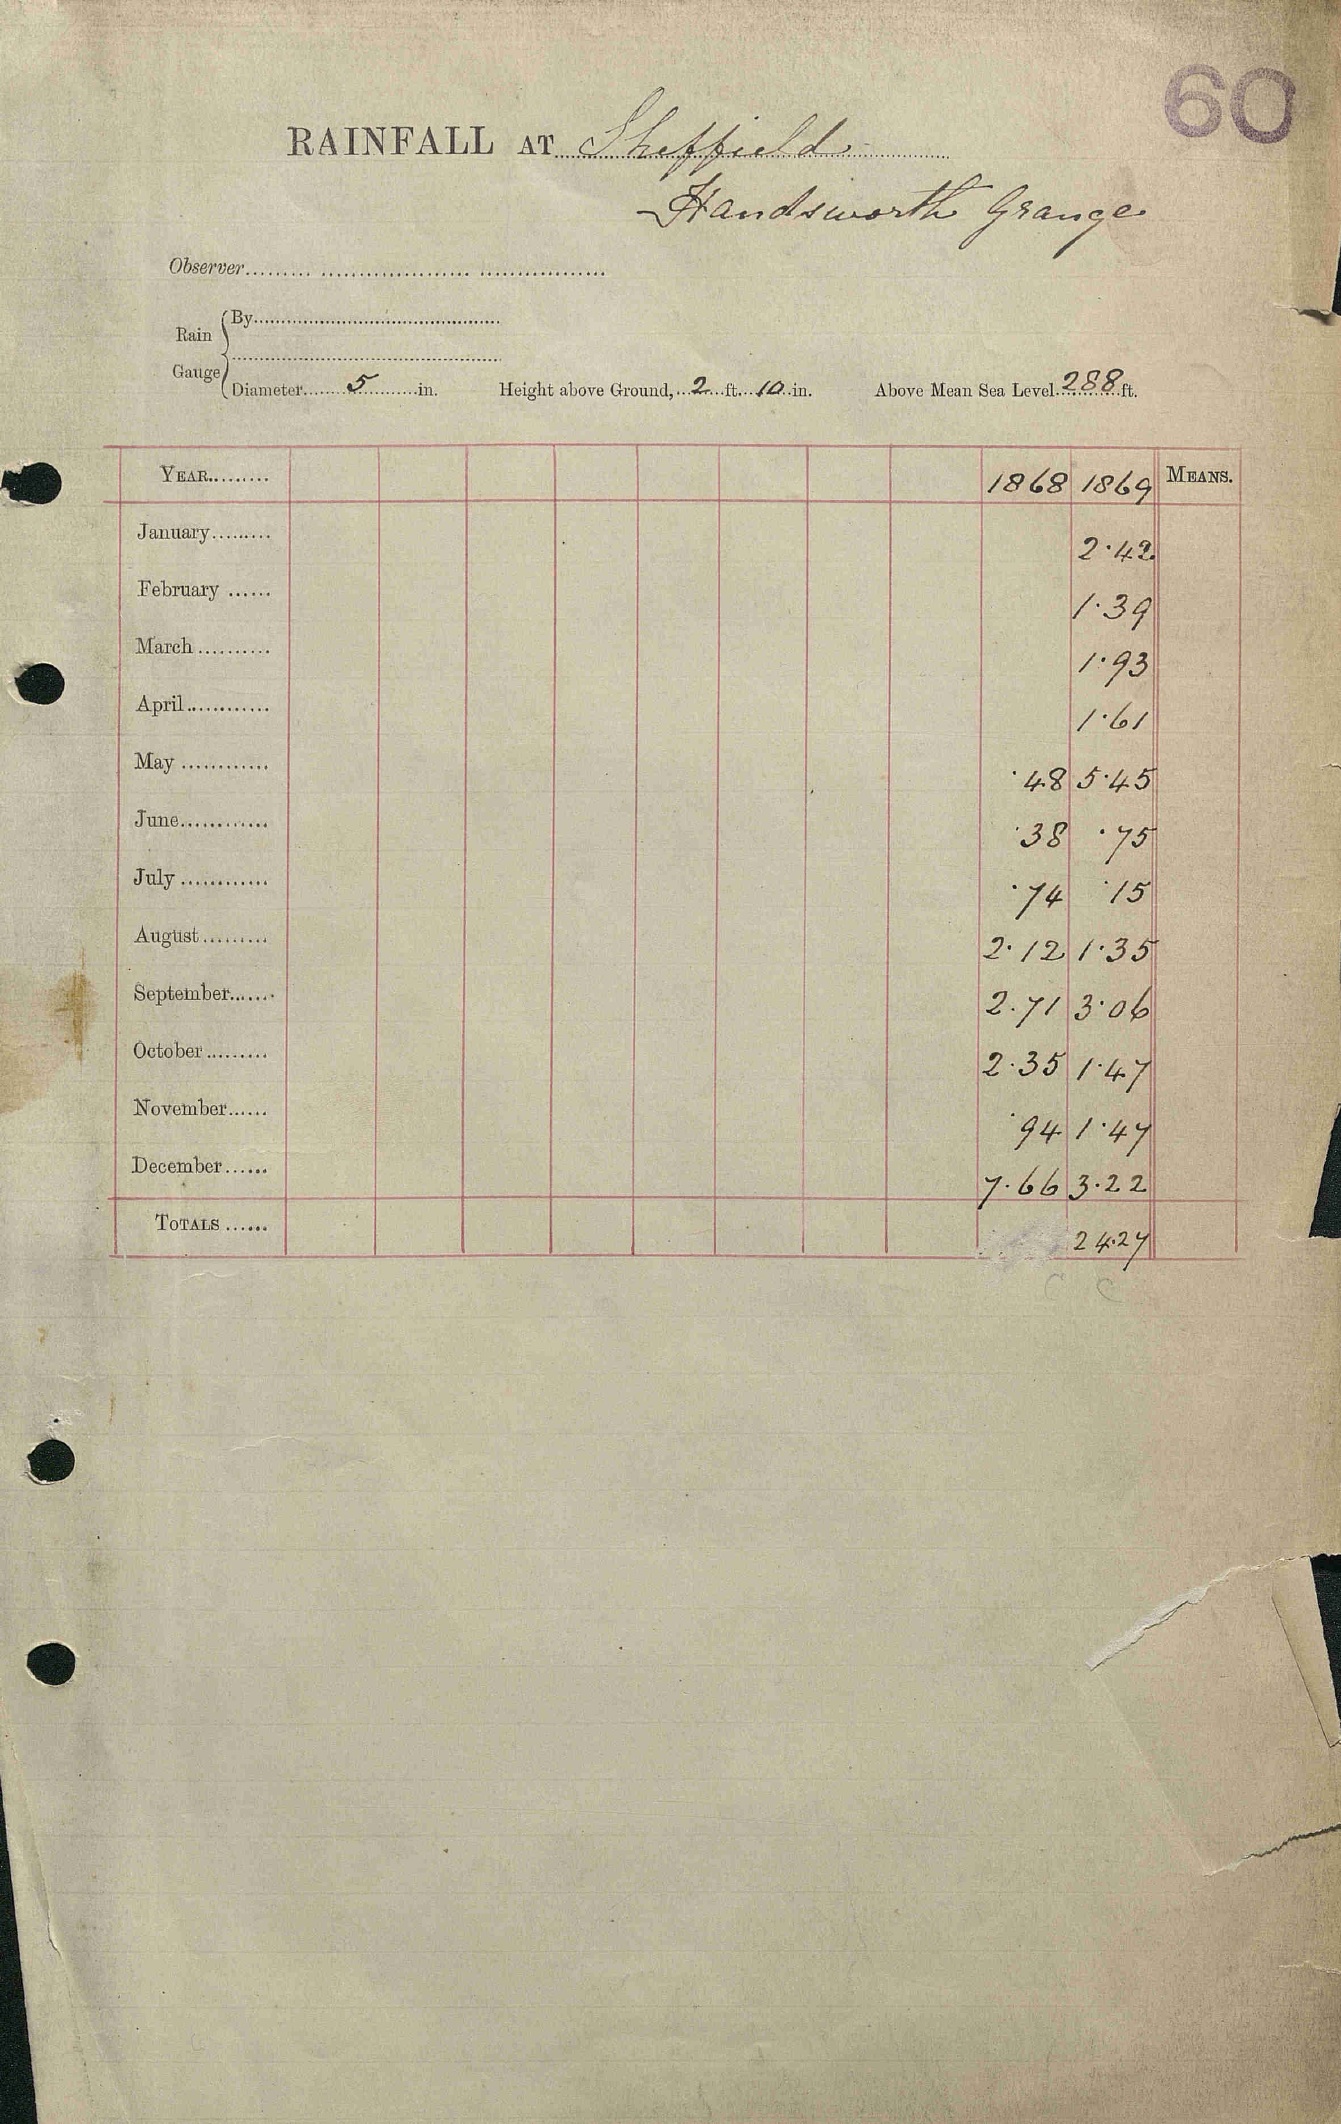 60
RAINFALL AT Sheffield
Handsworth Grange
Observer
Rain Gauge
By
Diameter 5 in. Height above Ground, 2 ft. 10 in. Above Mean Sea Level 288 ft.
YEAR 1868 1869 MEANS.
January 2.42
February 1.39
March 1.93
April 1.61
May .48 5.45
June .38 .75
July .74 .15
August 2.12 1.35
September 2.71 3.06
October 2.35 1.47
November .94 1.47
December 7.66 3.22
TOTALS 24.27
C C